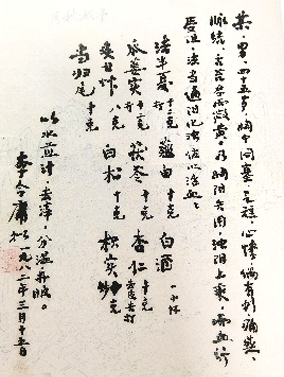 某，男，四十五岁，胸中闷塞，气短，心悸，偶有刺痛感，
脉结，舌苔微黄。乃胸阳失用，浊阴上乘，兼血行
受阻，法当通阳化浊，佐以活血。
法半夏十二克打 薤白 十克 白酒 一小杯
瓜蒌实 打 茯苓 十克 杏仁 十克去皮尖打
八克 十克 枳实炒 十克
当归尾 十克
以水煎汁，去滓，分温再服。
李今庸 一九八二年三月十五日